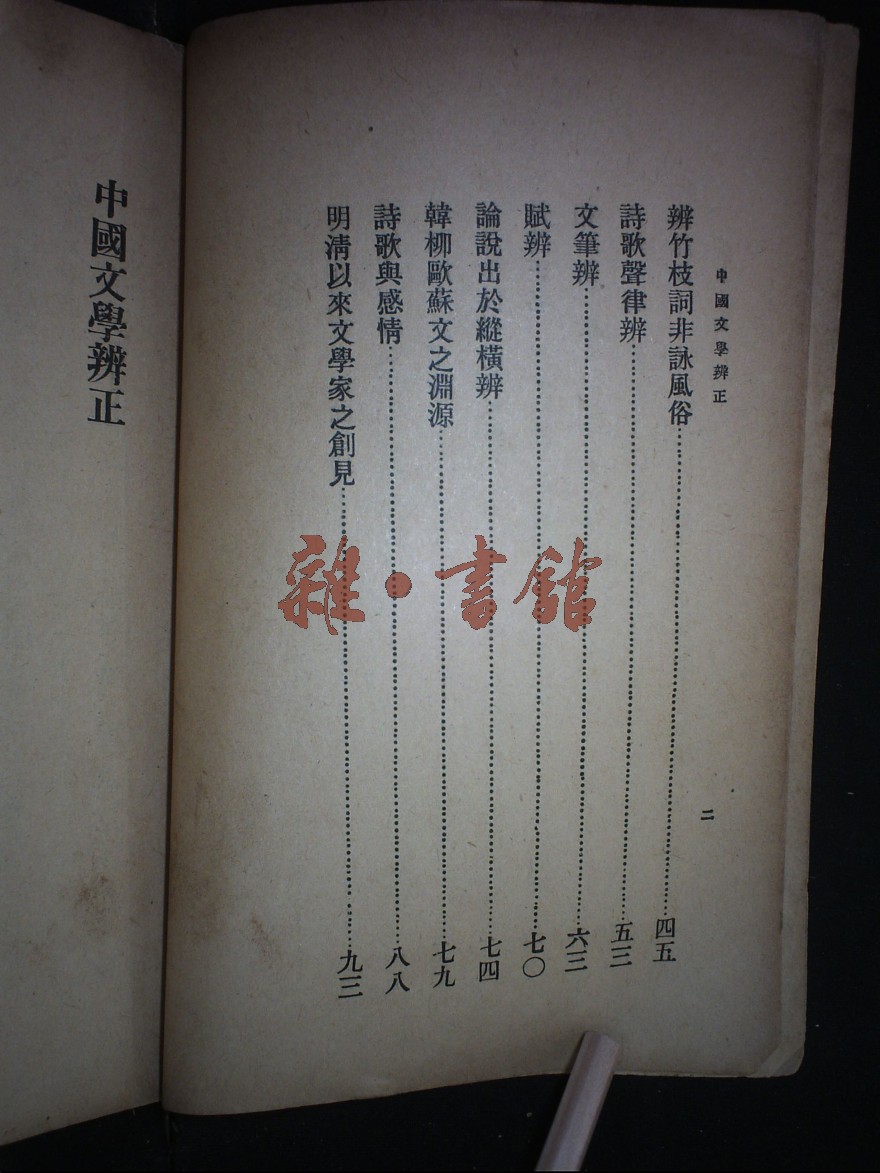 中國文學辨正
二
辨竹枝詞非詠風俗……四五
詩歌聲律辨……五三
文筆辨……六三
賦辨……七〇
論說出於縱橫辨……七四
韓柳歐蘇文之淵源……七九
詩歌與感情……八八
明清以來文學家之創見……九三
中國文學辨正
雜·書館